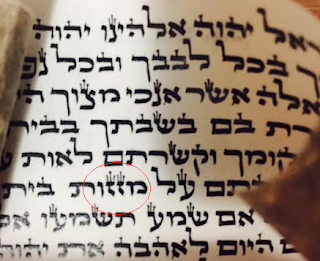 ראל יהוה אלהינו יהוה
בכל לבבך ובכל נפ
אלה אשר אנכי מצוך הי
רת בם בשבתך בבית
קומך וקשרתם לאות ע
תם על מזזות בית
אם שמע תשמעו א
ם היום לאהבה את יהוה